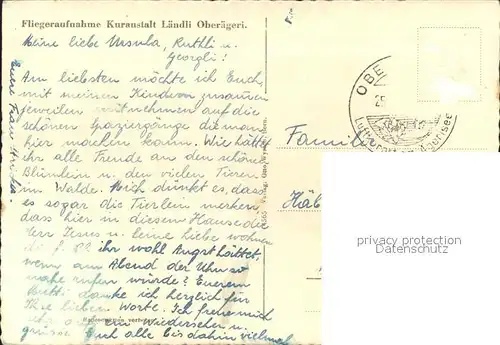 Fliegeraufnahme Kuranstalt Ländli Oberägeri.
Meine liebe Ursula, Ruthli u.
Georgli!
Am liebsten möchte ich Euch,
mit meinen Kindern zusammen
jeweilen mitnehmen auf die
schönen Spaziergänge die man
hier machen kann. Wie hättet
ihr alle Freude an den schönen
Blümlein u. den vielen Tieren
im Walde. Mich dünkt es, dass
es sogar die Tierlein merken,
dass hier in diesem Hause die
Herr Jesus u. seine Liebe wohnen
ihr wohl Angst hättet,
wenn am Abend der Uhu so
nahe rufen würde? Euerem
Mutti danke ich herzlich für
Ihre lieben Worte. Ich freue mich
ein Wiedersehen u.
grüsse Euch alle bis dahin vielmals
Eure Frau
Familie
Häb
OBE
Ägerisee
privacy protection
Datenschutz